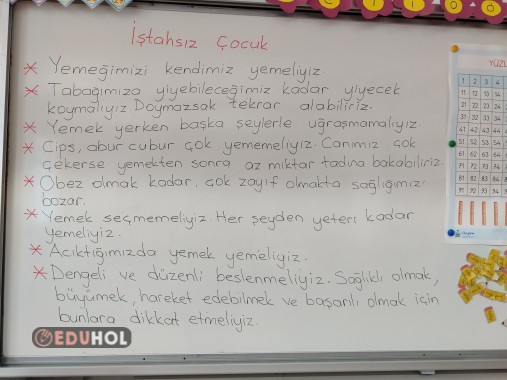 İştahsız Çocuk
* Yemeğimizi kendimiz yemeliyiz
* Tabağımıza yiyebileceğimiz kadar yiyecek
koymalıyız Doymazsak tekrar alabiliriz.
* Yemek yerken başka şeylerle uğraşmamalıyız
* Cips, abur cubur çok yememeliyiz. Canımız çok
çekerse yemekten sonra az miktar tadına bakabiliriz.
* Obez olmak kadar, çok zayıf olmakta sağlığımızı
bozar.
* Yemek seçmemeliyiz. Her şeyden yeteri kadar
yemeliyiz.
* Acıktığımızda yemek yemeliyiz.
* Dengeli ve düzenli beslenmeliyiz. Sağlıklı olmak,
büyümek, hareket edebilmek ve başarılı olmak için
bunlara dikkat etmeliyiz.
EDUHOL
YÜZL
1 2 3 4
11 12 13 14
21 22 23 24
31 32 33 34
41 42 43 44
51 52 53 54
61 62 63 64
71 72 73 74
81 82 83 84
91 92 93 94